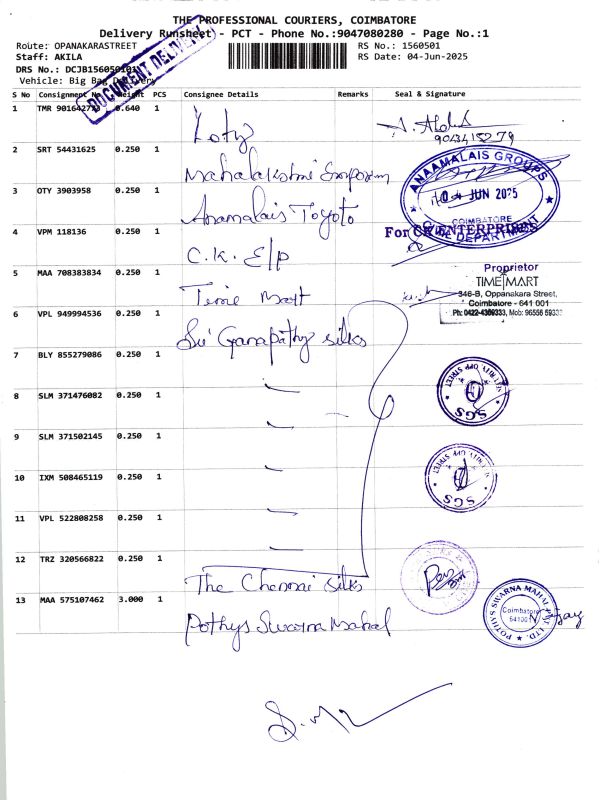 THE PROFESSIONAL COURIERS, COIMBATORE
Delivery Runsheet - PCT - Phone No.:9047080280 - Page No.:1
Route: OPANAKARASTREET
RS No.: 1560501
Staff: AKILA
RS Date: 04-Jun-2025
DRS No.: DCJB1560501
Vehicle: Big Bag Delivery
DOCUMENT DELIVERY
S No Consignment No Weight PCS Consignee Details Remarks Seal & Signature
1 TMR 901642773 0.640 1
9043415279
2 SRT 54431625 0.250 1 Mahalakshmi Emporium
3 OTY 3903958 0.250 1 Anamalais Toyoto
ANAAMALAIS GROUPS
04 JUN 2025
COIMBATORE
4 VPM 118136 0.250 1 C.K. E/P
For CK ENTERPRISES
Proprietor
5 MAA 708383834 0.250 1 Time Mart
TIME MART
346-B, Oppanakara Street,
Coimbatore - 641 001
Ph: 0422-4369333, Mob: 96556 59333
6 VPL 949994536 0.250 1 Sri Ganapathy silks
7 BLY 855279086 0.250 1
SGS
8 SLM 371476082 0.250 1
9 SLM 371502145 0.250 1
SGS
10 IXM 508465119 0.250 1
11 VPL 522808258 0.250 1
12 TRZ 320566822 0.250 1 The Chennai silks
13 MAA 575107462 3.000 1 Pothys Swarna Mahal
POTHYS SWARNA MAHAL PVT LTD.
Coimbatore
641001